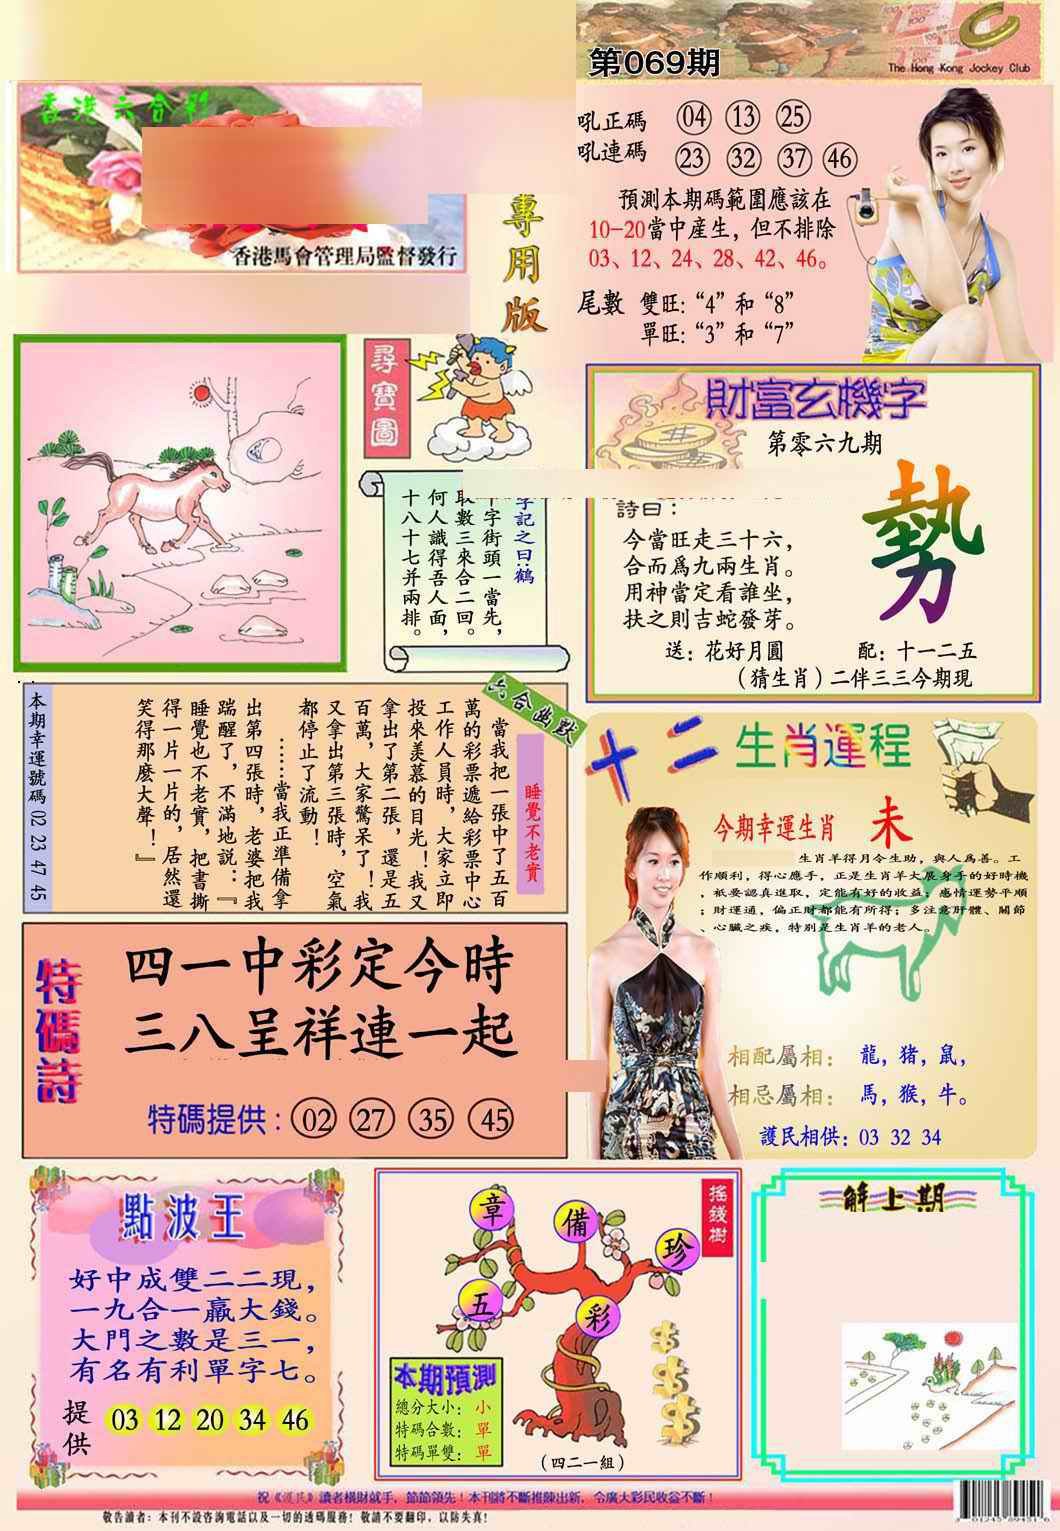 香港六合彩
香港馬會管理局監督發行
專用版
第069期
The Hong Kong Jockey Club
吼正碼 04 13 25
吼連碼 23 32 37 46
預測本期碼範圍應該在
10-20當中産生，但不排除
03、12、24、28、42、46。
尾數 雙旺：“4”和“8”
單旺：“3”和“7”
尋寶圖
字記之曰：鶴
十字街頭一當先，
取數三來合二回。
何人識得吾人面，
十八十七并兩排。
財富玄機字
第零六九期
詩曰：
今當旺走三十六，
合而爲九兩生肖。
用神當定看誰坐，
扶之則吉蛇發芽。
勢
送：花好月圓 配：十一二五
（猜生肖）二伴三三今期現
本期幸運號碼 02 23 47 45
六合幽默
睡覺不老實
當我把一張中了五百
萬的彩票遞給彩票中心
工作人員時，大家立即
投來羡慕的目光！我又
拿出了第二張，還是五
百萬，大家驚呆了！我
又拿出第三張時，空氣
都停止了流動！
……當我正準備拿
出第四張時，老婆把我
踹醒了，不滿地説：『
睡覺也不老實，把書撕
得一片一片的，居然還
笑得那麼大聲！』
十二生肖運程
今期幸運生肖 未
生肖羊得月令生助，與人爲善。工
作順利，得心應手，正是生肖羊大展身手的好時機
，衹要認真進取，定能有好的收益；感情運勢平順
；財運通，偏正財都能有所得；多注意肝體、關節
、心臟之疾，特別是生肖羊的老人。
相配屬相：龍，猪，鼠，
相忌屬相：馬，猴，牛。
護民相供：03 32 34
特碼詩
四一中彩定今時
三八呈祥連一起
特碼提供：02 27 35 45
點波王
好中成雙二二現，
一九合一贏大錢。
大門之數是三一，
有名有利單字七。
提供 03 12 20 34 46
搖錢樹
章
備
珍
五
彩
本期預測
總分大小：小
特碼合數：單
特碼單雙：單
（四二一組）
解上期
祝《護民》讀者橫財就手，節節領先！本刊將不斷推陳出新，令廣大彩民收益不斷！
敬告讀者：本刊不設咨詢電話以及一切的透碼服務！敬請不要翻印，以防失真！